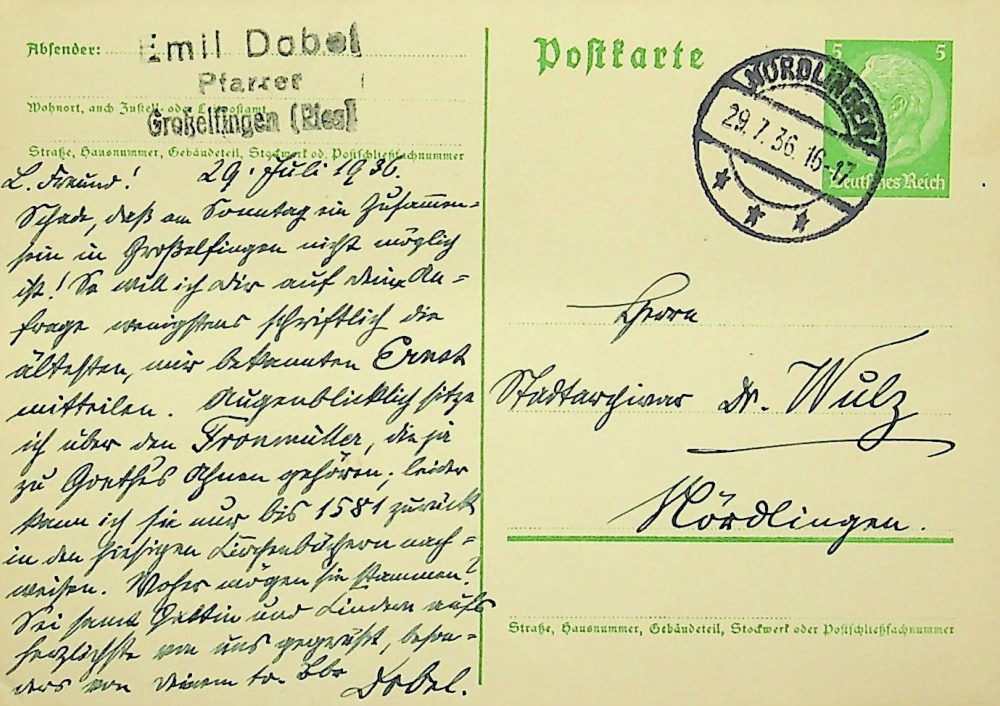 Absender:
Emil Dobel
Pfarrer
Wohnort, auch Zustell- oder Leitpostamt
Großelfingen (Ries)
Straße, Hausnummer, Gebäudeteil, Stockwerk od. Postschließfachnummer
L. Freund! 29. Juli 1936.
Schade, daß am Sonntag ein Zusammen=
sein in Großelfingen nicht möglich
ist! So will ich Dir auf Deine An=
frage wenigstens schriftlich die
ältesten, mir bekannten Ernst
mitteilen. Augenblicklich sitze
ich über den Fronmüller, die ja
zu Goethes Ahnen gehören; leider
kann ich sie nur bis 1581 zurück
in den hiesigen Kirchenbüchern nach=
weisen. Woher mögen sie stammen?
Sei samt Gattin und Kindern aufs
herzlichste von uns gegrüßt, beson=
ders von Deinem
Dobel.
Postkarte
5 5
Deutsches Reich
NÖRDLINGEN
29.7.36. 16-17
Herrn
Stadtarchivar Dr. Wulz
Nördlingen.
Straße, Hausnummer, Gebäudeteil, Stockwerk oder Postschließfachnummer